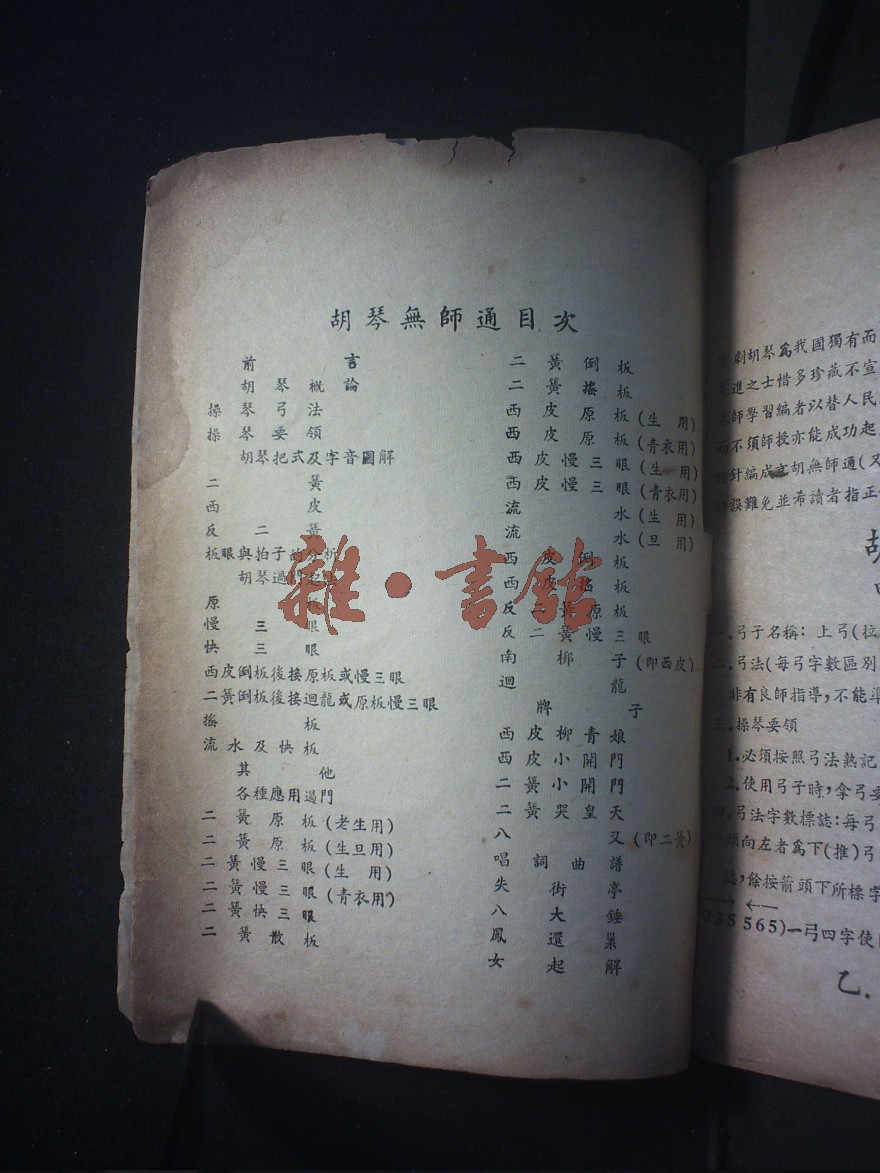 胡琴無師通目次
前言
胡琴概論
操琴弓法
操琴要領
胡琴把式及字音圖解
二黃
西皮
反二黃
板眼與拍子的分析
胡琴過門
原板
慢三眼
快三眼
西皮倒板後接原板或慢三眼
二黃倒板後接迴龍或原板慢三眼
搖板
流水及快板
其他
各種應用過門
二黃原板(老生用)
二黃原板(生旦用)
二黃慢三眼(生用)
二黃慢三眼(青衣用)
二黃快三眼
二黃散板
二黃倒板
二黃搖板
西皮原板(生用)
西皮原板(青衣用)
西皮慢三眼(生用)
西皮慢三眼(青衣用)
流水(生用)
流水(旦用)
西皮倒板
西皮板
反二黃原板
反二黃慢三眼
南梆子(即西皮)
迴龍
牌子
西皮柳青娘
西皮小開門
二黃小開門
二黃哭皇天
八叉(即二黃)
唱詞曲譜
失街亭
八大錘
鳳還巢
女起解
劇胡琴為我國獨有而
進之士惜多珍藏不宣
師學習編者以替人民
不須師授亦能成功起
針編成京胡無師通(又
誤難免並希讀者指正
胡
一.弓子名稱：上弓(拉
二.弓法(每弓字數區別
非有良師指導,不能準
三.操琴要領
1.必須按照弓法熟記
2.使用弓子時,拿弓要
四.弓法字數標誌:每弓
頭向左者為下(推)弓
誌,餘按箭頭下所標字
235 565)一弓四字使
乙.
雜·書館